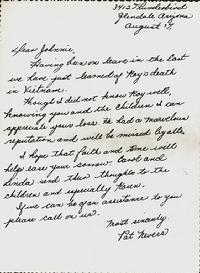 3413 Thunderbird
Glendale Arizona
August 17,
Dear Johnnie,
Having been on leave in the East
we have just learned of Ray's death
in Vietnam.
Though I did not know Ray well,
knowing you and the children I can
appreciate your loss. He had a marvelous
reputation and will be missed by all.
I hope that faith and time will
help ease your sorrow. Carol and
Linda send their thoughts to the
children and especially Karen.
If we can be of an assistance to you
please call on us.
Most sincerely,
Pat